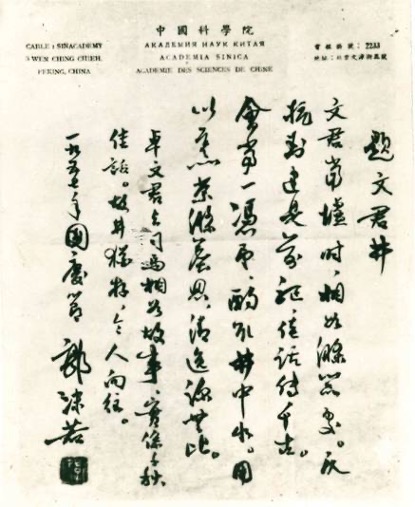 中國科學院
АКАДЕМИЯ НАУК КИТАЯ
ACADEMIA SINICA
ACADEMIE DES SCIENCES DE CHINE
CABLE : SINACADEMY
3 WEN CHING CHIEH,
PEKING, CHINA
電報掛號：2233
地址：北京文津街三號
題文君井
文君當壚時，相如滌器處。反
抗封建是前驅，佳話傳千古。
會當一憑弔，酌取井中水。用
以烹茶滌塵思，清逸涼無比。
卓文君與司馬相如故事，實係千秋
佳話。故井猶存，令人向往。
一九五七年國慶節 郭沫若